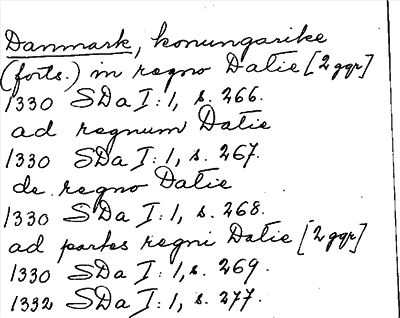 Danmark, konungarike
(forts.) in regno Datie [2 ggr]
1330 SDa I:1, s. 266.
ad regnum Datie
1330 SDa I:1, s. 267.
de regno Datie
1330 SDa I:1, s. 268.
ad partes regni Datie [2 ggr]
1330 SDa I:1, s. 269.
1332 SDa I:1, s. 277.